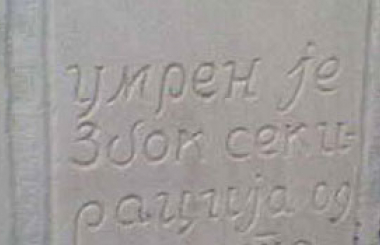 умрен је
збок секи-
рација од